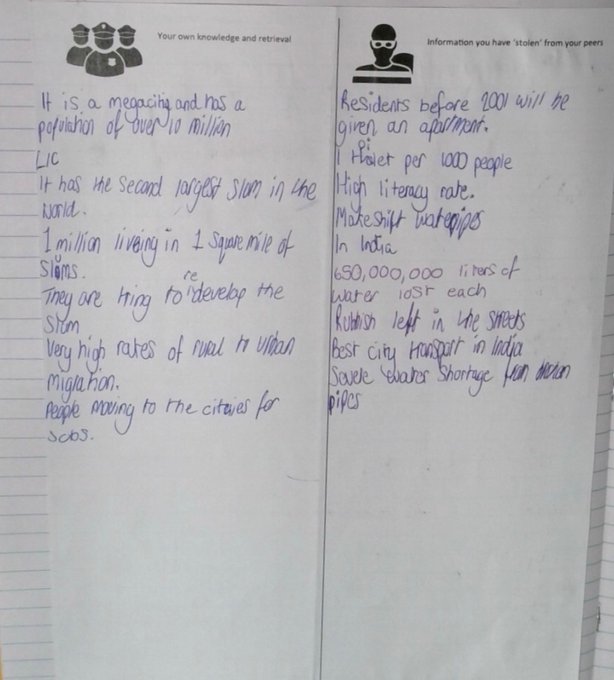 Your own knowledge and retrieval
It is a megacity and has a
population of over 10 million
LIC
It has the second largest slum in the
world.
1 million liveing in 1 square mile of
slums.
They are tring to redevelop the
slum
Very high rates of rural to urban
migration.
People moving to the cities for
jobs.
Information you have 'stolen' from your peers
Residents before 2001 will be
given an apartment.
1 toilet per 1000 people
High literacy rate.
Makeshift waterpipes
In India
650,000,000 liters of
water lost each
Rubbish left in the streets
Best city transport in India
Severe water shortage from
pipes